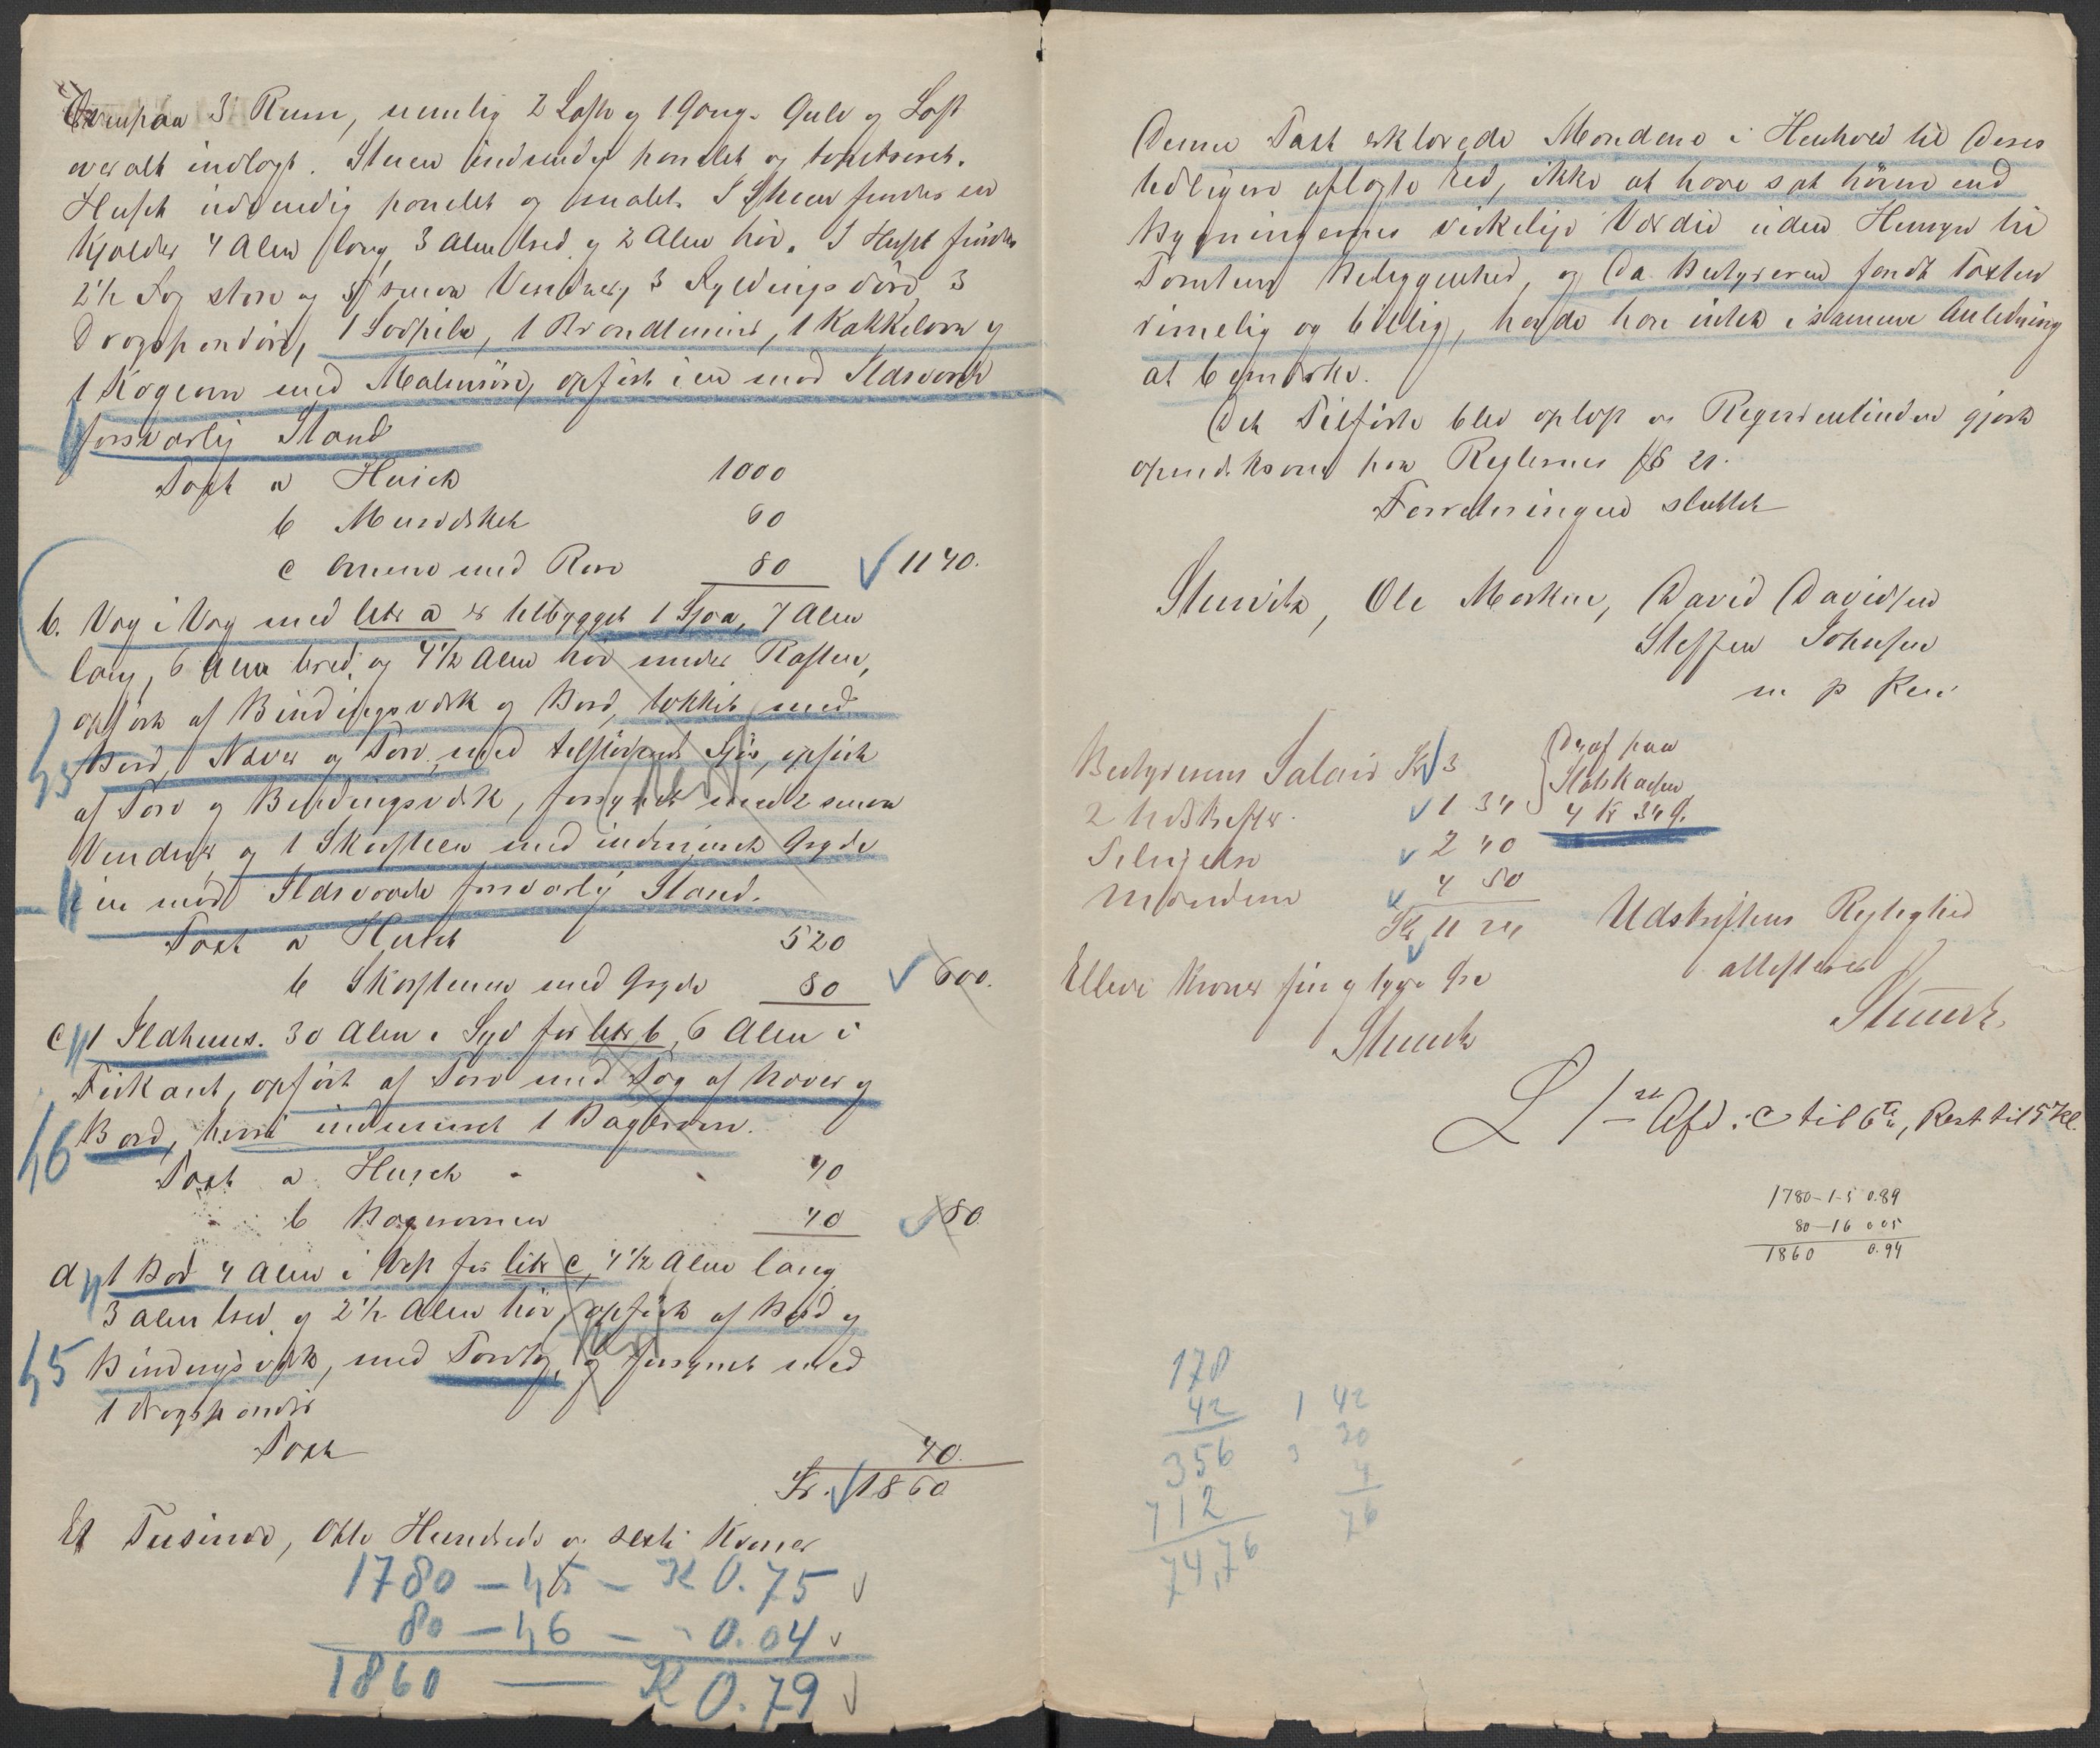 Ovenpaa 3 Rum, nemlig 2 Loft og 1 Gang. Gulv og Loft
overalt indlagt. Stuen indvendig panelet og tapetseret.
Huset udvendig panelet og malet. I Stuen findes en
Kjælder 4 Alen lang, 3 Alen bred og 2 Alen høi. I Huset findes
2½ Fag store og 5 smaa Vinduer, 3 Fyldingsdøre, 3
Dragspendøre, 1 Sodpibe, 1 Brandmuur, 1 Kakkelovn og
1 Kogeovn med Malmrør, opført i en mod Ildsvaade
forsvarlig Stand
Taxt a Huset 1000
b Murværket 60
c Ovnene med Rør 80 1140.
b. Væg i Væg med litr a er tilbygget 1 Fjøs, 7 Alen
lang, 6 Alen bred, og 4½ Alen høi under Raften,
opført af Bindingsværk og Bord, tækket med
Bord, Næver og Torv, med tilstødende Fjøs, opført
af Torv og Bindingsværk, forsynet med 2 smaa
Vinduer, og 1 Skorsteen med indmuret Gryde
i en mod Ildsvaade forsvarlig Stand.
Taxt a Huset 520
b Skorstenen med Gryde 80 600.
c, 1 Ildhuus. 30 Alen i Syd for litr b, 6 Alen i
Firkant, opført af Torv med Tag af Næver og
Bord, heri indmuret 1 Bagerovn.
46
Taxt a Huset 40
b Bagerovnen 40 80
d, 1 Bod 4 Alen i Vest for litr c, 4½ Alen lang
3 Alen bred og 2½ Alen høi, opført af Bord og
45 Bindingsværk, med Torvtag, og forsynet med
1 Dragspendør
Taxt 40.
Kr. 1860
Et Tusinde, Otte Hundrede og sexti Kroner
1780 — 45 — K 0.75
80 — 46 — 0.04
1860 — K 0.79
Denne Taxt erklærede Mændene i Henhold til deres
tidligere aflagte Eed, ikke at have sat høiere end
Bygningernes virkelige Værdie uden Hensyn til
Tomtens Beliggenhed, og da Bestyreren fandt Taxten
rimelig og billig, havde han intet i samme Anledning
at bemærke.
Det Tilførte blev oplæst og Reqvirentinden gjort
opmærksom paa Reglernes § 21.
Forretningen sluttet
Ole Morten, David Davidsen
Steffen Johnsen
m p Pen
Bestyrerens Salair Kr 3
2 Udskrifter 1 34
2 40
Mændene 4 50
Kr 11 24
Deraf paa
Statskassen
4 Kr 34 Ø.
Elleve Kroner fire og tyve Øre
Udskriftens Rigtighed
attesterer
L 1ste Afd: c til 6te, Rest til 5te Kl.
1780 – 1-5 0.89
80 – 16 0.05
1860 0.94
178
42
356
712
74,76
1 42
3 30
4
76